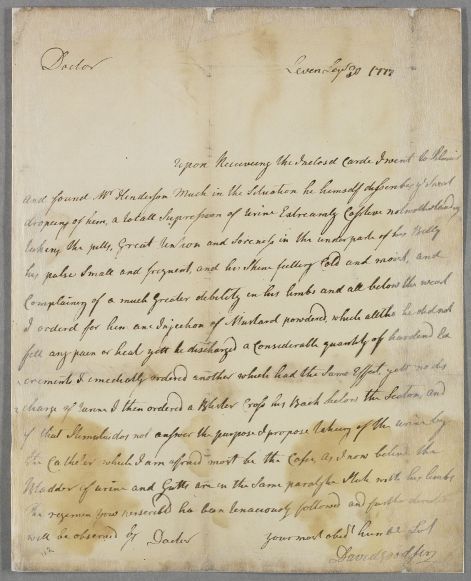 Doctor
Leven Sepr 30 1777
Upon Receiveing the Inclosed Carde I went to
and found Mr Henderson Much in the Situation he himself
of him, a totall Supression of Urine Extreamly Costive notwithstanding
takeing the pills, Great Tension and Soreness in the under parte of his Belly
his pulse Small and frequent, and his Skine feelling Cold and moist, and
Complaining of a much Greater debility in his limbs and all below the
I orderd for him ane Injection of Mustard powdered, which altho he did not
fell any pain or heat yett he discharged a Considerable quantity of hardend Ex
crements I imediatly ordered another which had the Same Effect yett no dis
charge of Urine I then ordered a Blister Cross his Back below the and
if that Stimulus dos not answer the purpose I propose takeing of the urine by
the Catheter which I am affraid most be the Case, as I now beleive the
Bladder of urine and Gutts are in the Same paralytic State with his limbs
The regemen you perscribed has been tenaciously followed and further
will be observed Dr Doctor your most obedt humble Sert
David